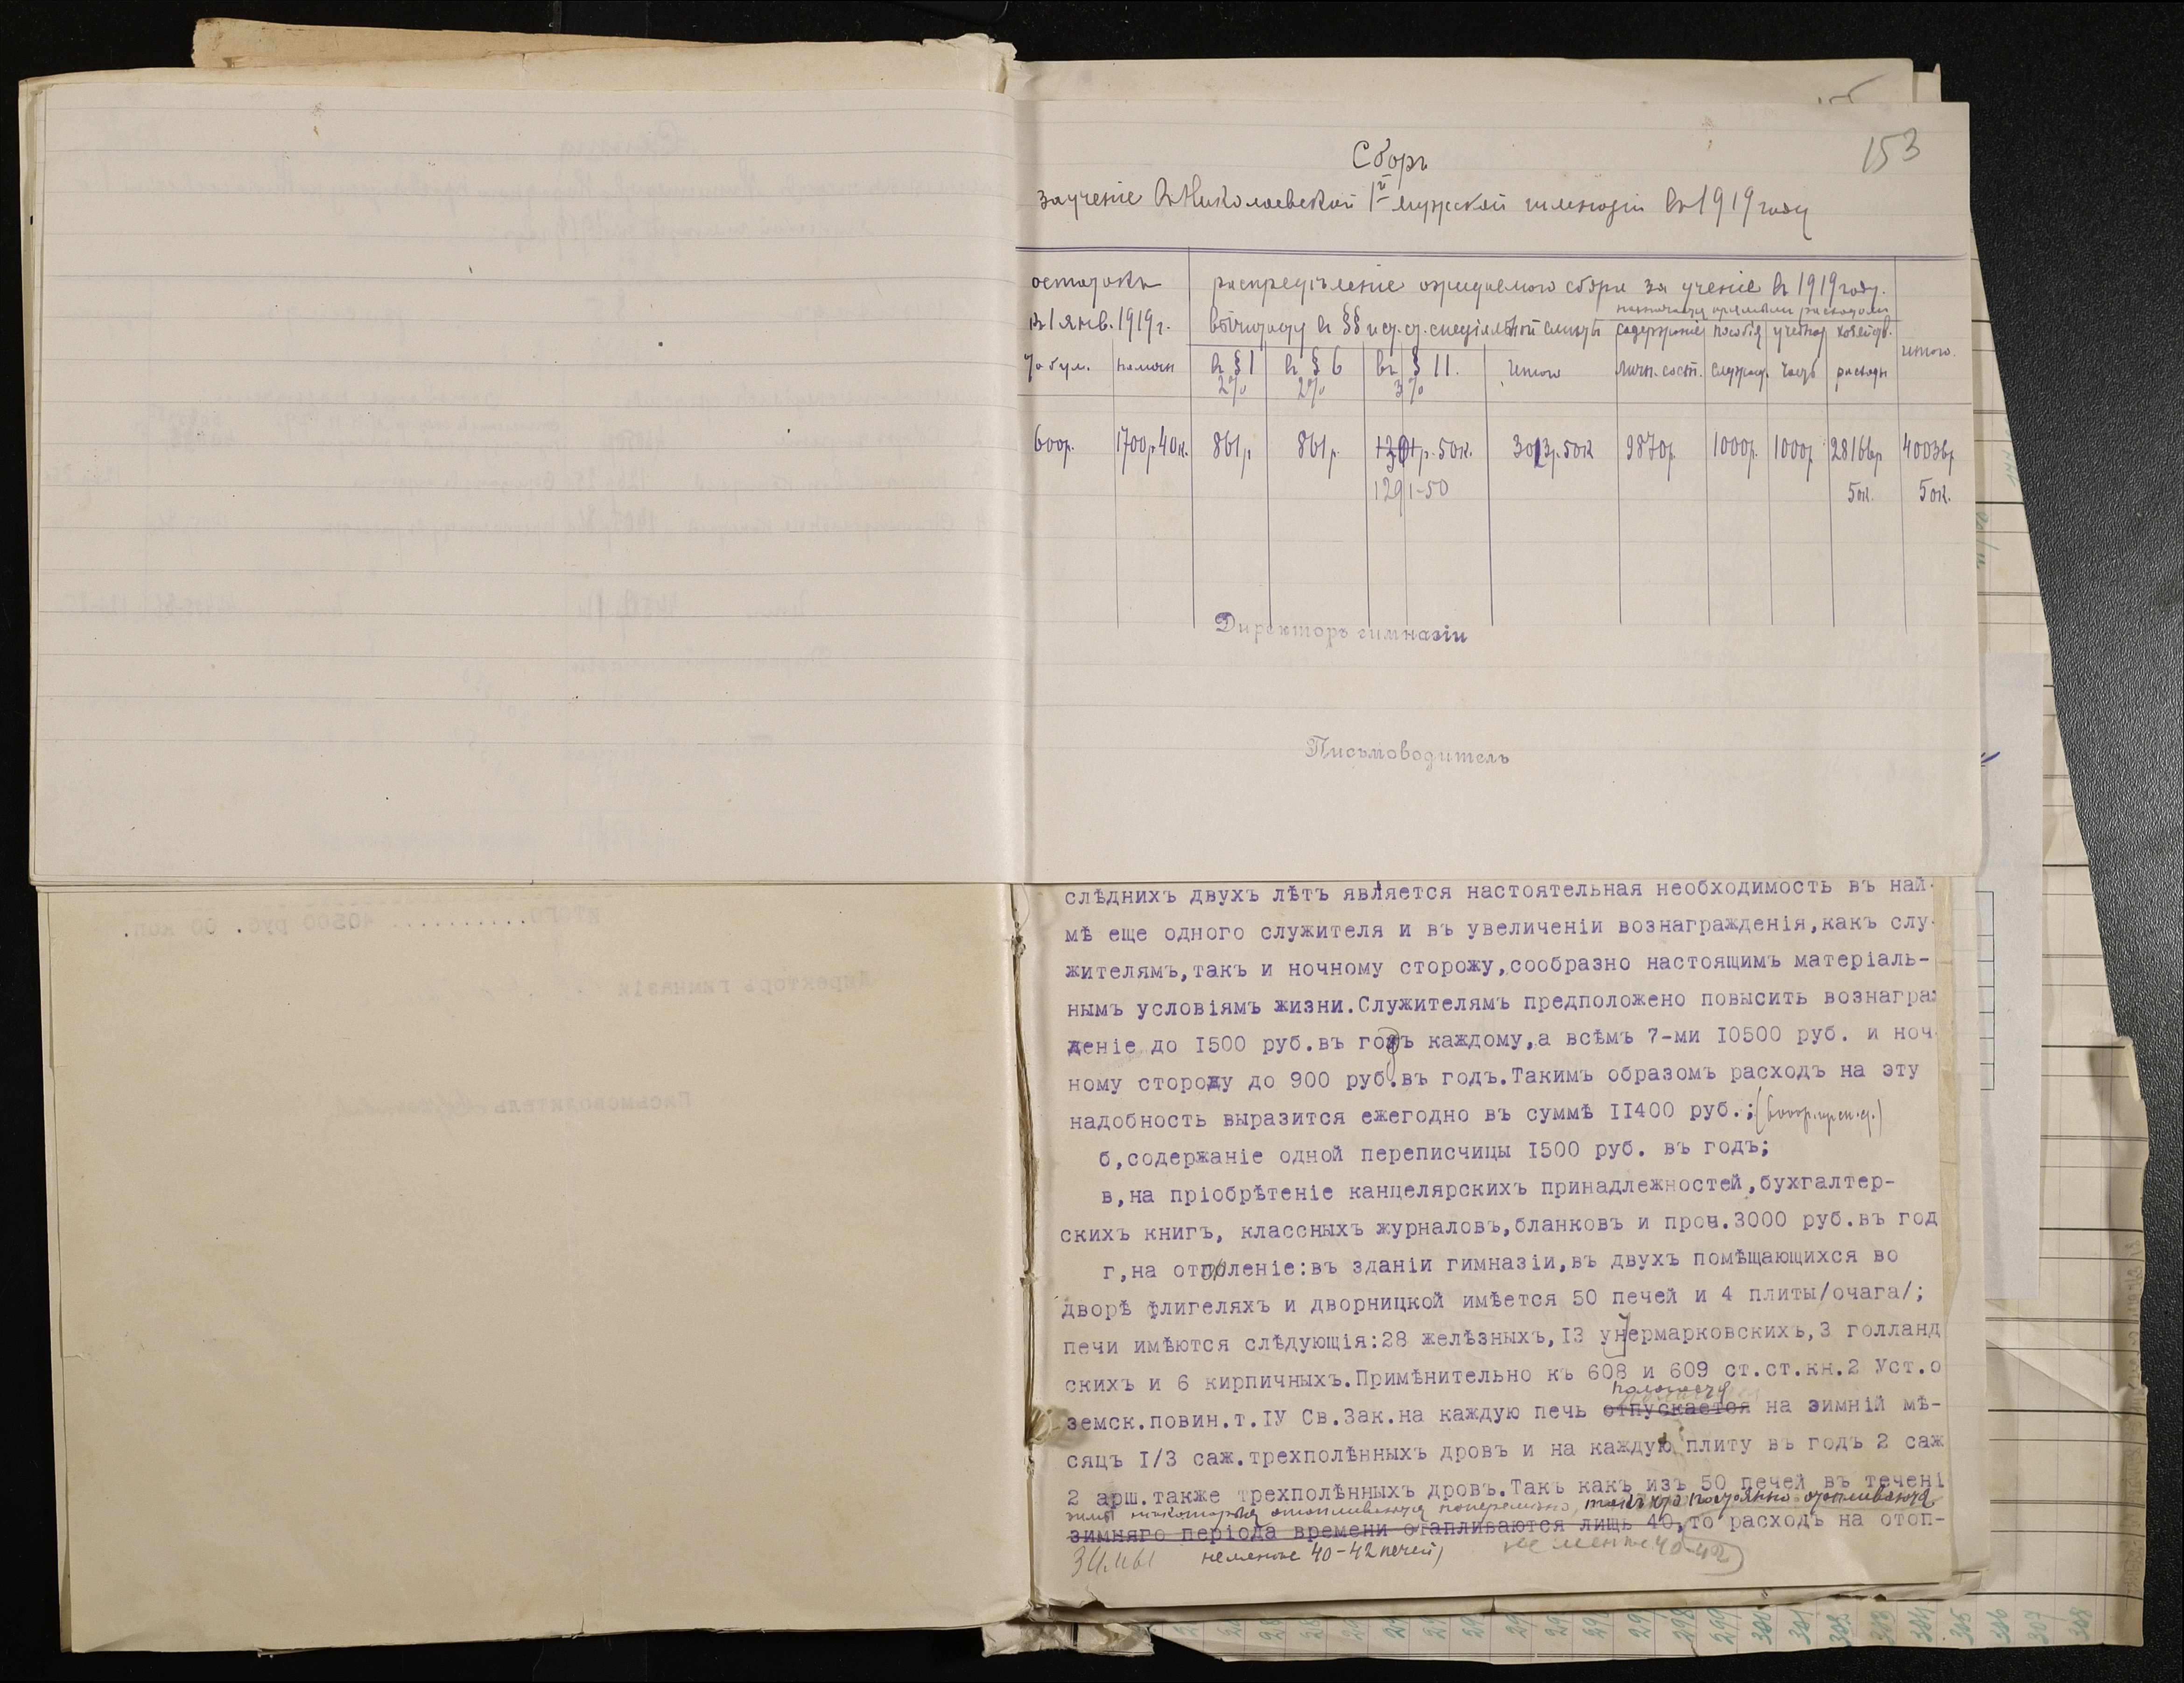 153
Сборъ
за ученіе въ Николаевской 1й мужской гимназіи въ 1919 году
остатокъ
къ 1 янв. 1919 г.
распредѣленіе ожидаемого сбора за ученіе въ 1919 году.
въ §§ спеціальной смѣты
содержаніе пособія учебная хозяйств.
% бум. налич въ § 1 въ § 6 въ § 11. Итого личн. сост. служащ. часть расходы итого.
2% 2% 3%
600р. 1700р.40к. 861р 861р 1301р.50к. 3013р.50к 9870р. 1000р. 1000р. 28166р 40036р
1291-50 50к. 50к.
Директоръ гимназіи
Письмоводитель
слѣднихъ двухъ лѣтъ является настоятельная необходимость въ най-
мѣ еще одного служителя и въ увеличеніи вознагражденія,какъ слу-
жителямъ,такъ и ночному сторожу,сообразно настоящимъ матеріаль-
нымъ условіямъ жизни.Служителямъ предположено повысить вознаграж
деніе до I500 руб.въ годъ каждому,а всѣмъ 7-ми I0500 руб. и ноч-
ному сторожу до 900 руб.въ годъ.Такимъ образомъ расходъ на эту
надобность выразится ежегодно въ суммѣ II400 руб.;
б,содержаніе одной переписчицы I500 руб. въ годъ;
в,на пріобрѣтеніе канцелярскихъ принадлежностей,бухгалтер-
скихъ книгъ, классныхъ журналовъ,бланковъ и проч.3000 руб.въ год
г,на отопленіе:въ зданіи гимназіи,въ двухъ помѣщающихся во
дворѣ флигеляхъ и дворницкой имѣется 50 печей и 4 плиты/очага/;
печи имѣются слѣдующія:28 желѣзныхъ,I3 унтермарковскихъ,3 голланд
скихъ и 6 кирпичныхъ.Примѣнительно къ 608 и 609 ст.ст.кн.2 Уст.о
полагается
земск.повин.т.IУ Св.Зак.на каждую печь отпускается на зимній мѣ-
сяцъ I/3 саж.трехполѣнныхъ дровъ и на каждую плиту въ годъ 2 саж
2 арш.также трехполѣнныхъ дровъ.Такъ какъ изъ 50 печей въ течені
зимы некоторыя отапливаются поперемѣнно, такъ что постоянно отапливаются
зимняго періода времени отапливаются лищь 40,то расходъ на отоп-
зимы не менѣе 40-42 печей, не менѣе 40-42
ИТОГО........... 40500 руб. 00 коп.
Директоръ гимназіи
Письмоводитель